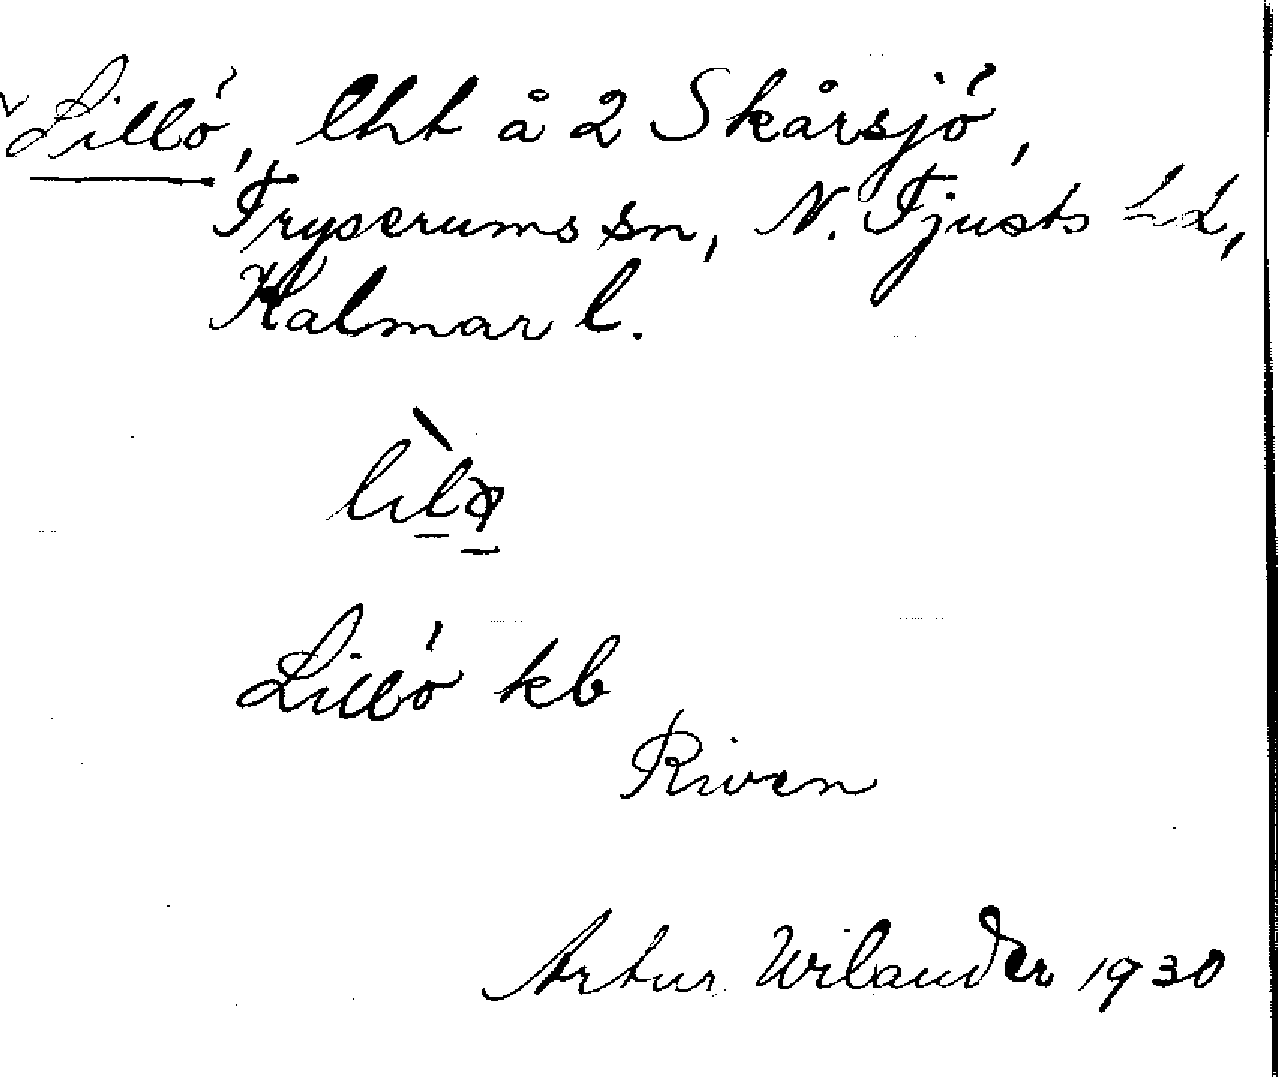 Lillö, lht å 2 Skårsjö,
Tryserums sn, N. Tjusts hd,
Kalmar l.
Lillö kb
Riven
Artur Wilander 1930